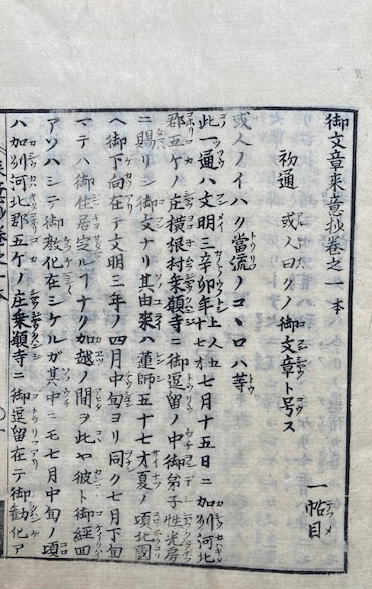 御文章来意抄卷之一本
一帖目
初通　或人曰クノ御文章ト号ス
或人ノイハク當流ノコヽロハ等
此一通ハ文明三辛卯年上人五十七才七月十五日ニ加刕河北
郡五ケノ庄横根村乗願寺ニ御逗留ノ中御弟子性光房
ニ賜リシ御文ナリ其由來ハ蓮師五十七才夏ノ頃北國
ヘ御下向在テ文明三年ノ四月中旬ヨリ同ク七月下旬
マテハ御住居定ルイナク加越ノ間ヲ此ヤ彼ト御經回
アソハシテ御教化在シケルガ其中ニモ七月中旬ノ頃
ハ加刕河北郡五ケノ庄乗願寺ニ御逗留在テ御勧化ア